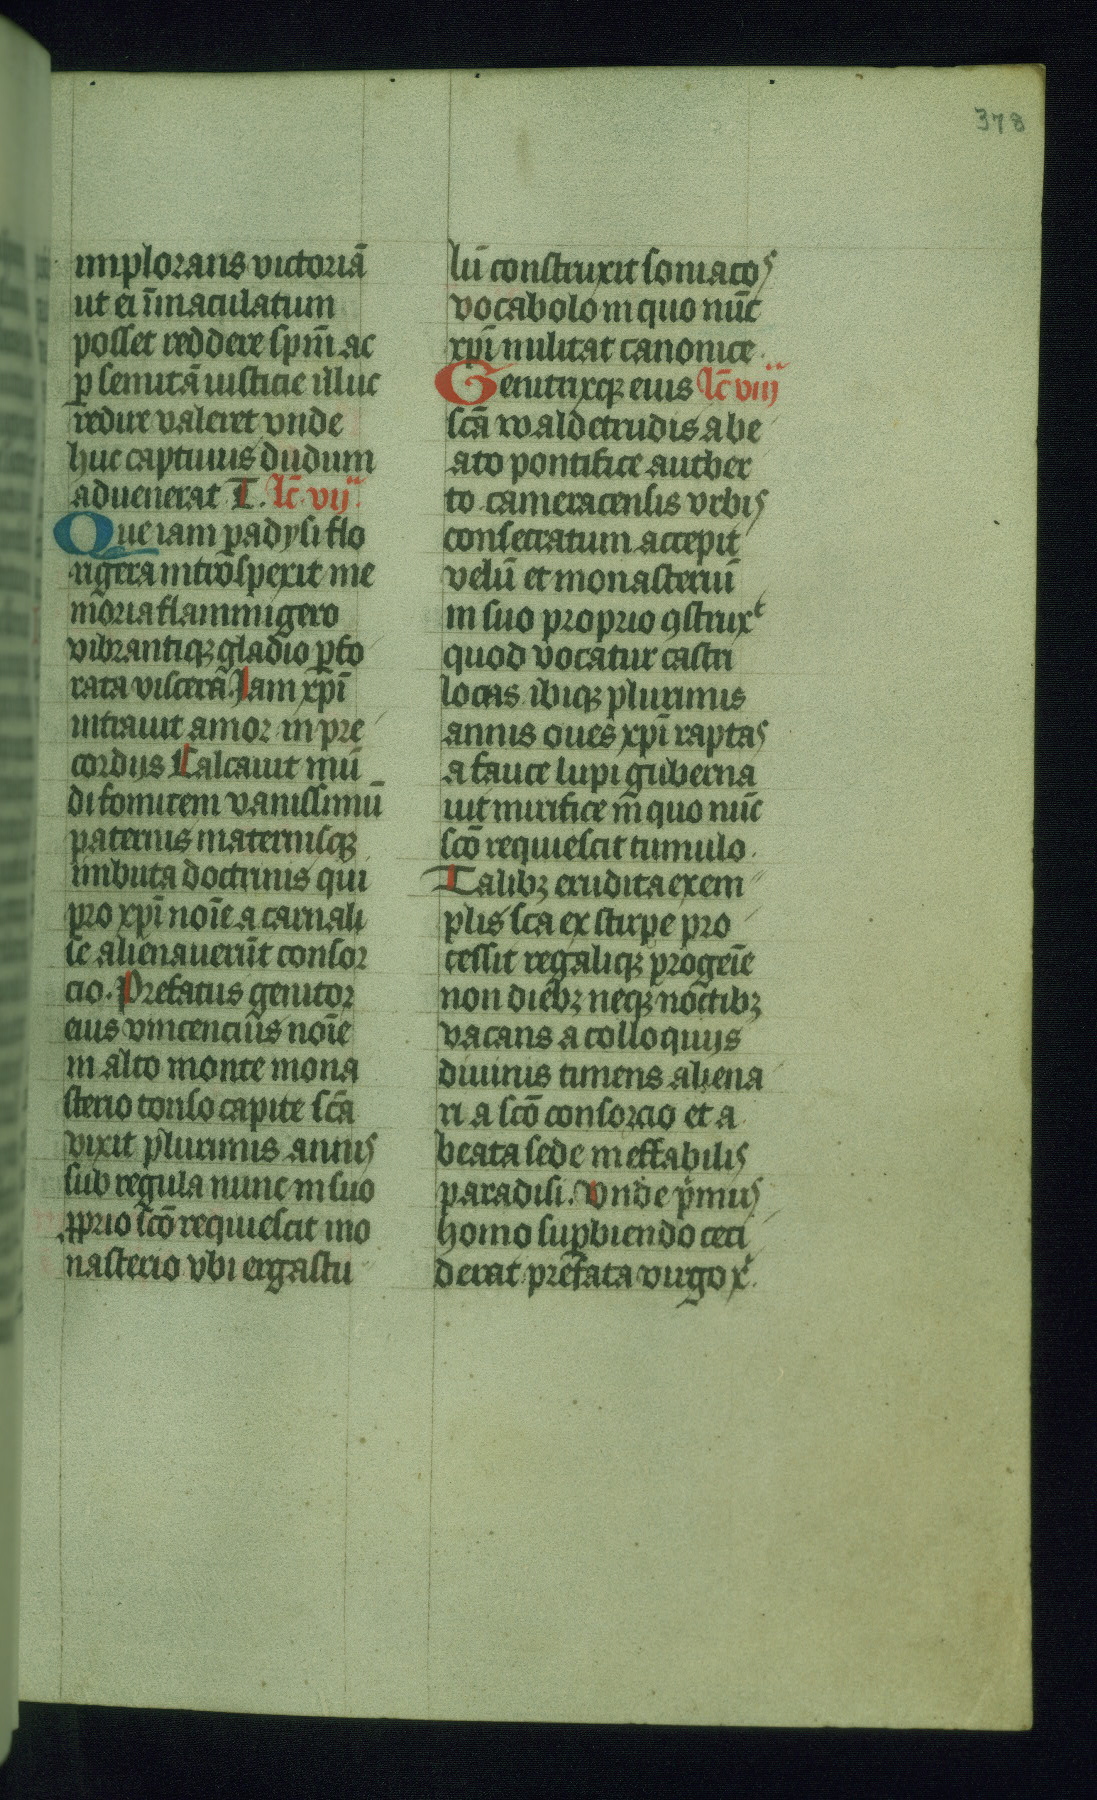 378
implorans victoriā
ut ei īmaculatum
posset reddere spm̄ ac
ꝑ semitā iusticie illuc
redire valeret vnde
huc captiuus dudum
aduenerat T. lc̄ vij
Que iam ꝑadysi flo
rigera introspexit me
moria flammigero
vibrantiqꝫ gladio ꝑfo
rata viscera Iam xpī
intrauit amor in pre
cordijs Calcauit mū
di fomitem vanissimū
paternis maternisqꝫ
imbuta doctrinis qui
pro xpī noīe a carnali
se alienauerūt consor
cio. Prefatus genitor
eius vincencius noīe
in alto monte mona
sterio tonso capite scā
vixit plurimis annis
sub regula nunc in suo
ꝓprio scō requiescit mo
nasterio vbi ergastu
lū construxit soniacos
vocabolo in quo nūc
xpī militat canonice.
Genitrixqꝫ eius lc̄ viij
scā waldetrudis a be
ato pontifice autber
to cameracensis vrbis
consecratum accepit
velū et monasteriū
in suo proprio ꝯstruxᵗ
quod vocatur castri
locus ibiqꝫ plurimis
annis oues xpī raptas
a fauce lupi guberna
uit mirifice in quo nūc
scō requiescit tumulo.
Talibꝫ erudita exem
plis sca ex stirpe pro
cessit regaliqꝫ progeīe
non diebꝫ neqꝫ noctibꝫ
vacans a colloquijs
diuinis timens aliena
ri a scō consorcio et a
beata sede ineffabilis
paradisi. Vnde pͥmus
homo suꝑbiendo ceci
derat prefata virgo xͥ.